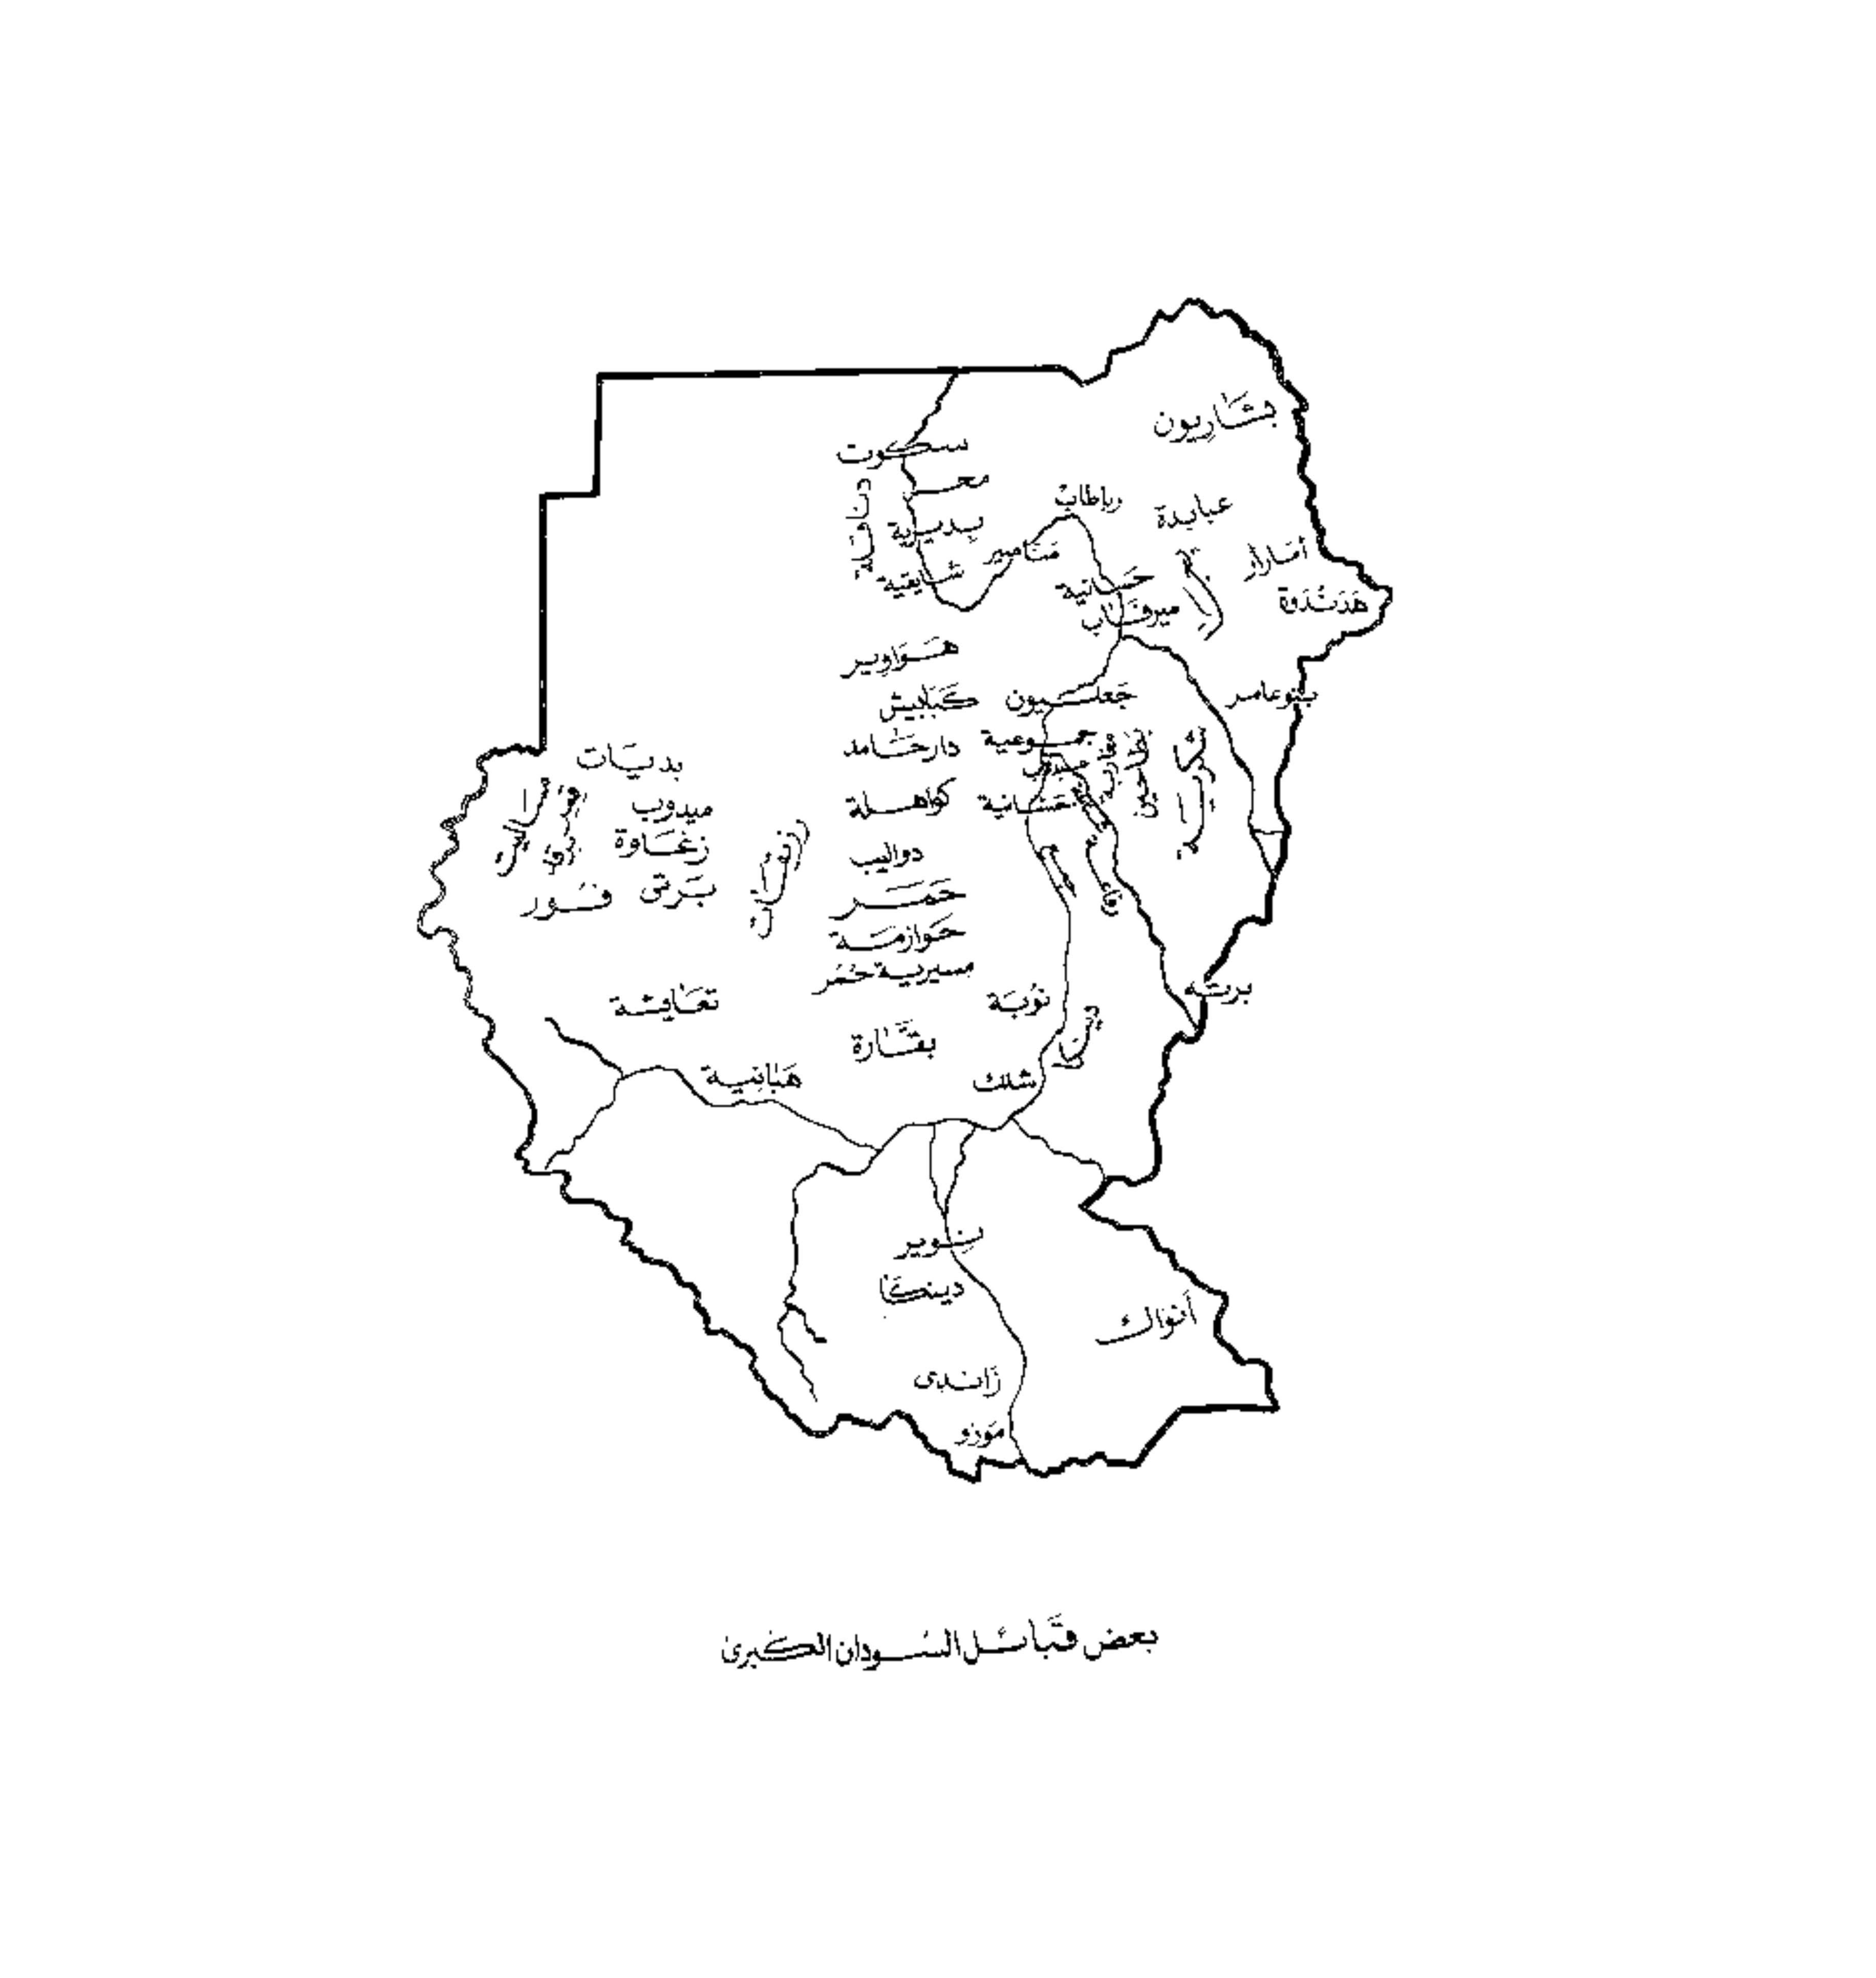 بشاريون
سكوت
رباطاب
عبابدة
بديرية
أمارار
مناصير
شايقية
حسانية
هدندوة
ميرفاب
هواوير
بنو عامر
كبابيش
جعليون
دار حامد
جموعية
بديات
كواهلة
حسانية
ميدوب
زغاوة
دواليب
برتى
فور
حمر
حوازمة
مسيرية حمر
تعايشة
نوبة
برته
بقارة
هبانية
شلك
نوير
دينكا
أنواك
زاندى
مورو
بعض قبائل السودان الكبرى